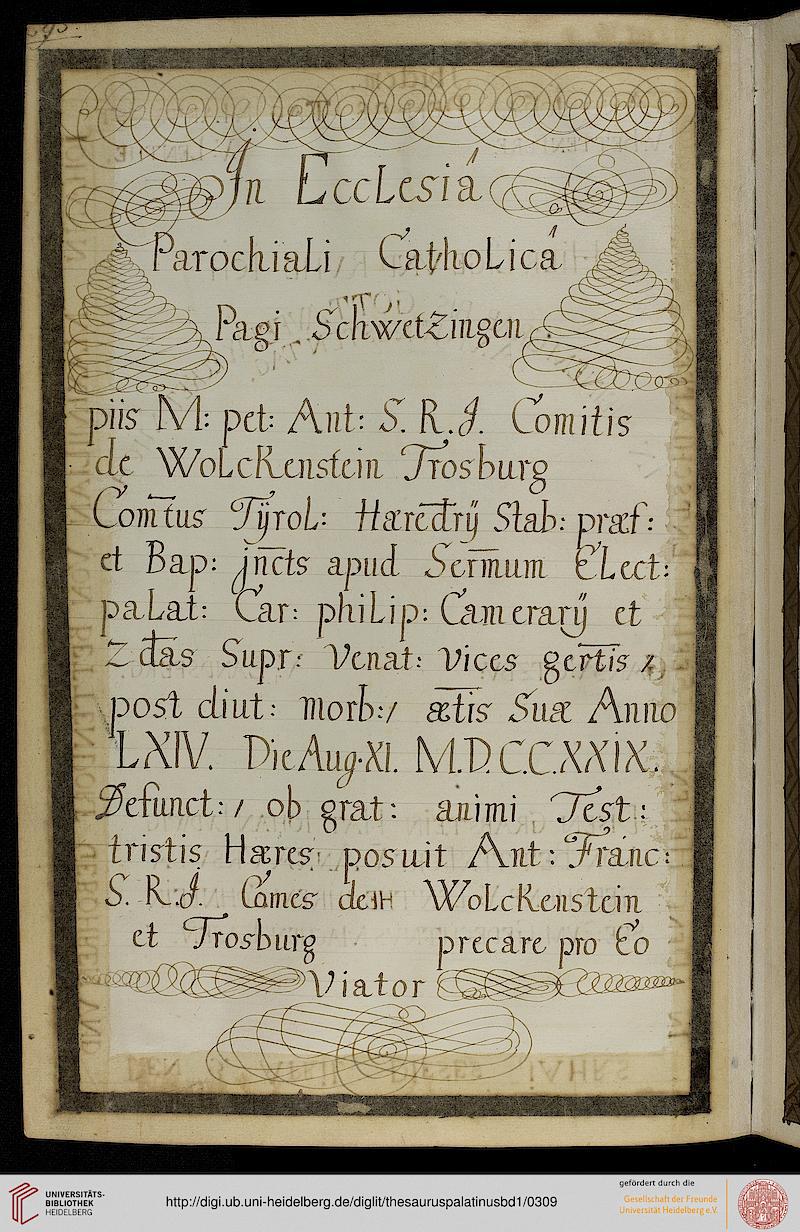 295.
In Ecclesiá
Parochiali Catholicá
Pagi Schwetzingen
piis M: pet: Ant: S. R. J. Comitis
de Wolckenstein Trosburg
Com̅tus Tÿrol: Hære̅dtrÿ Stab: præf:
et Bap: jn̅cts apud Ser̅mum Elect:
palat: Car: philip: Camerarÿ et
Z d̅as Supr: Venat: vices ger̅tis /
post diut: morb:/ æ̅tis Suæ Anno
LXIV. Die Aug. XI. M.D.C.C.XXIX.
Defunct: / ob grat: animi Test:
tristis Hæres posuit Ant: Franc:
S. R. J. Comes de Wolckenstein
et Trosburg precare pro Eo
Viator
UNIVERSITÄTS-
BIBLIOTHEK
HEIDELBERG
http://digi.ub.uni-heidelberg.de/diglit/thesauruspalatinusbd1/0309
gefördert durch die
Gesellschaft der Freunde
Universität Heidelberg e.V.